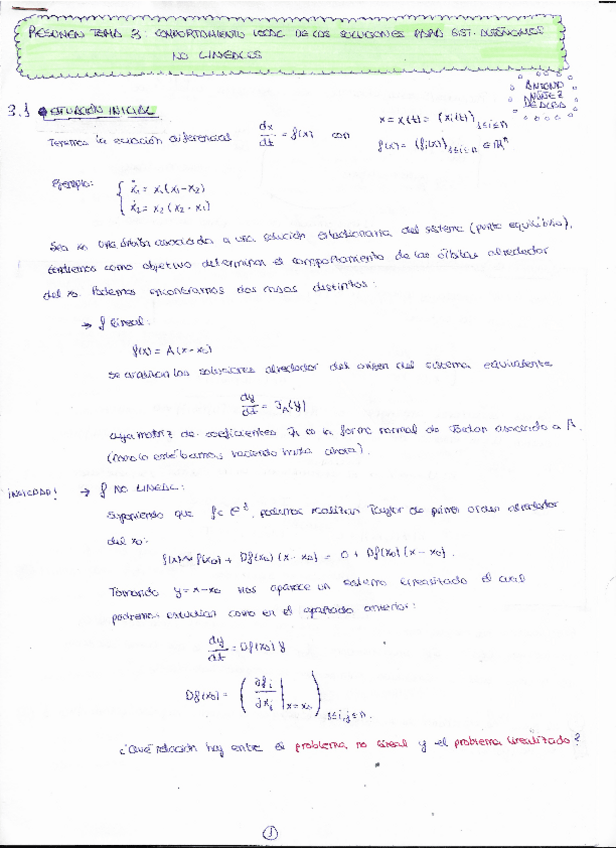 RESUMEN TEMA 3: COMPORTAMIENTO LOCAL DE LAS SOLUCIONES PARA SIST. ECUACIONES
NO LINEALES
ANTONIO
NUÑEZ
DE ALBA
3.1 SITUACIÓN INICIAL
Tenemos la ecuación diferencial dx/dt = f(x) con x = x(t) = (xi(t))1≤i≤n
f(x) = (fi(x))1≤i≤n ∈ ℝⁿ
Ejemplo: { ẋ1 = x1(x1-x2)
ẋ2 = x2(x2-x1)
Sea x0 una órbita asociada a una solución estacionaria del sistema (punto equilibrio),
tendremos como objetivo determinar el comportamiento de las órbitas alrededor
del x0. Podemos encontrarnos dos casos distintos:
→ f lineal:
f(x) = A(x-x0)
Se analizan las soluciones alrededor del origen del sistema equivalente
dy/dt = JA(y)
cuya matriz de coeficientes JA es la forma normal de Jordan asociada a A.
(Como lo estábamos haciendo hasta ahora).
¡NOVEDAD! → f NO LINEAL:
Suponiendo que f ∈ C², podemos realizar Taylor de primer orden alrededor
del x0:
f(x) ≈ f(x0) + Df(x0)(x-x0) = 0 + Df(x0)(x-x0).
Tomando y = x-x0 nos aparece un sistema linealizado el cual
podremos estudiar como en el apartado anterior:
dy/dt = Df(x0) y
Df(x0) = (∂fi/∂xj |x=x0)1≤i,j≤n.
¿Qué relación hay entre el problema no lineal y el problema linealizado?
1